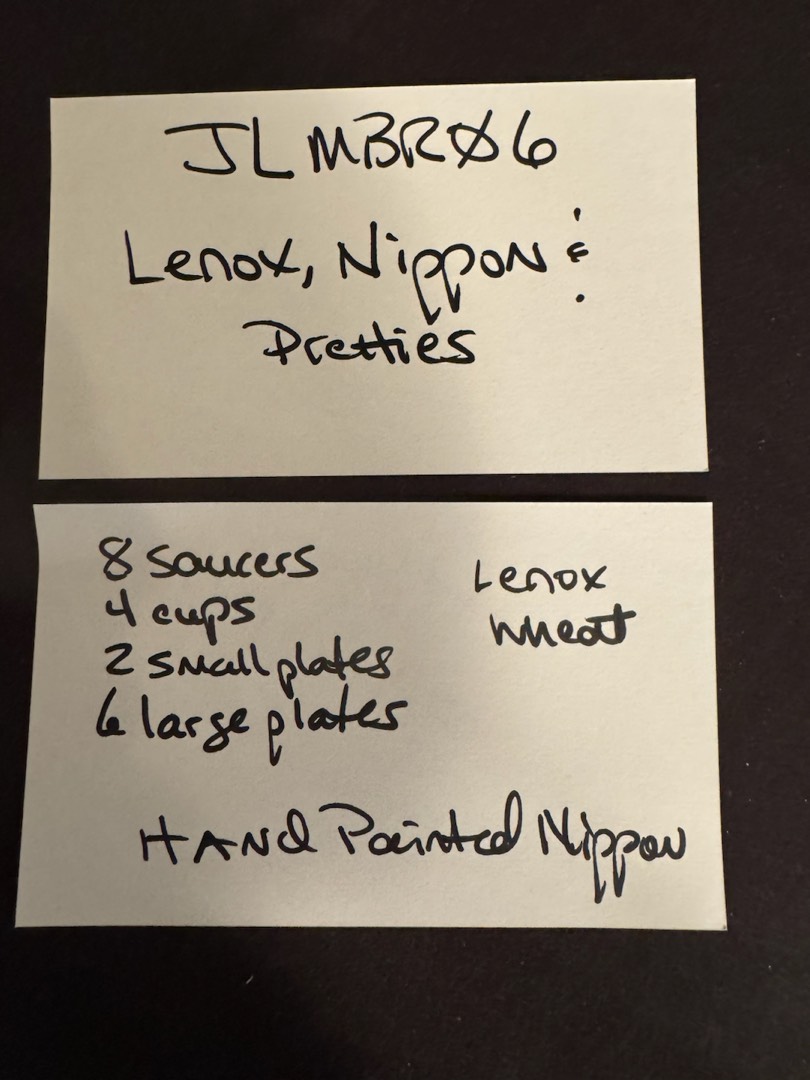 JLMBRØ6
Lenox, Nippon &
Pretties
8 saucers
4 cups
2 small plates
6 large plates
Lenox
Wheat
HAND Painted Nippon